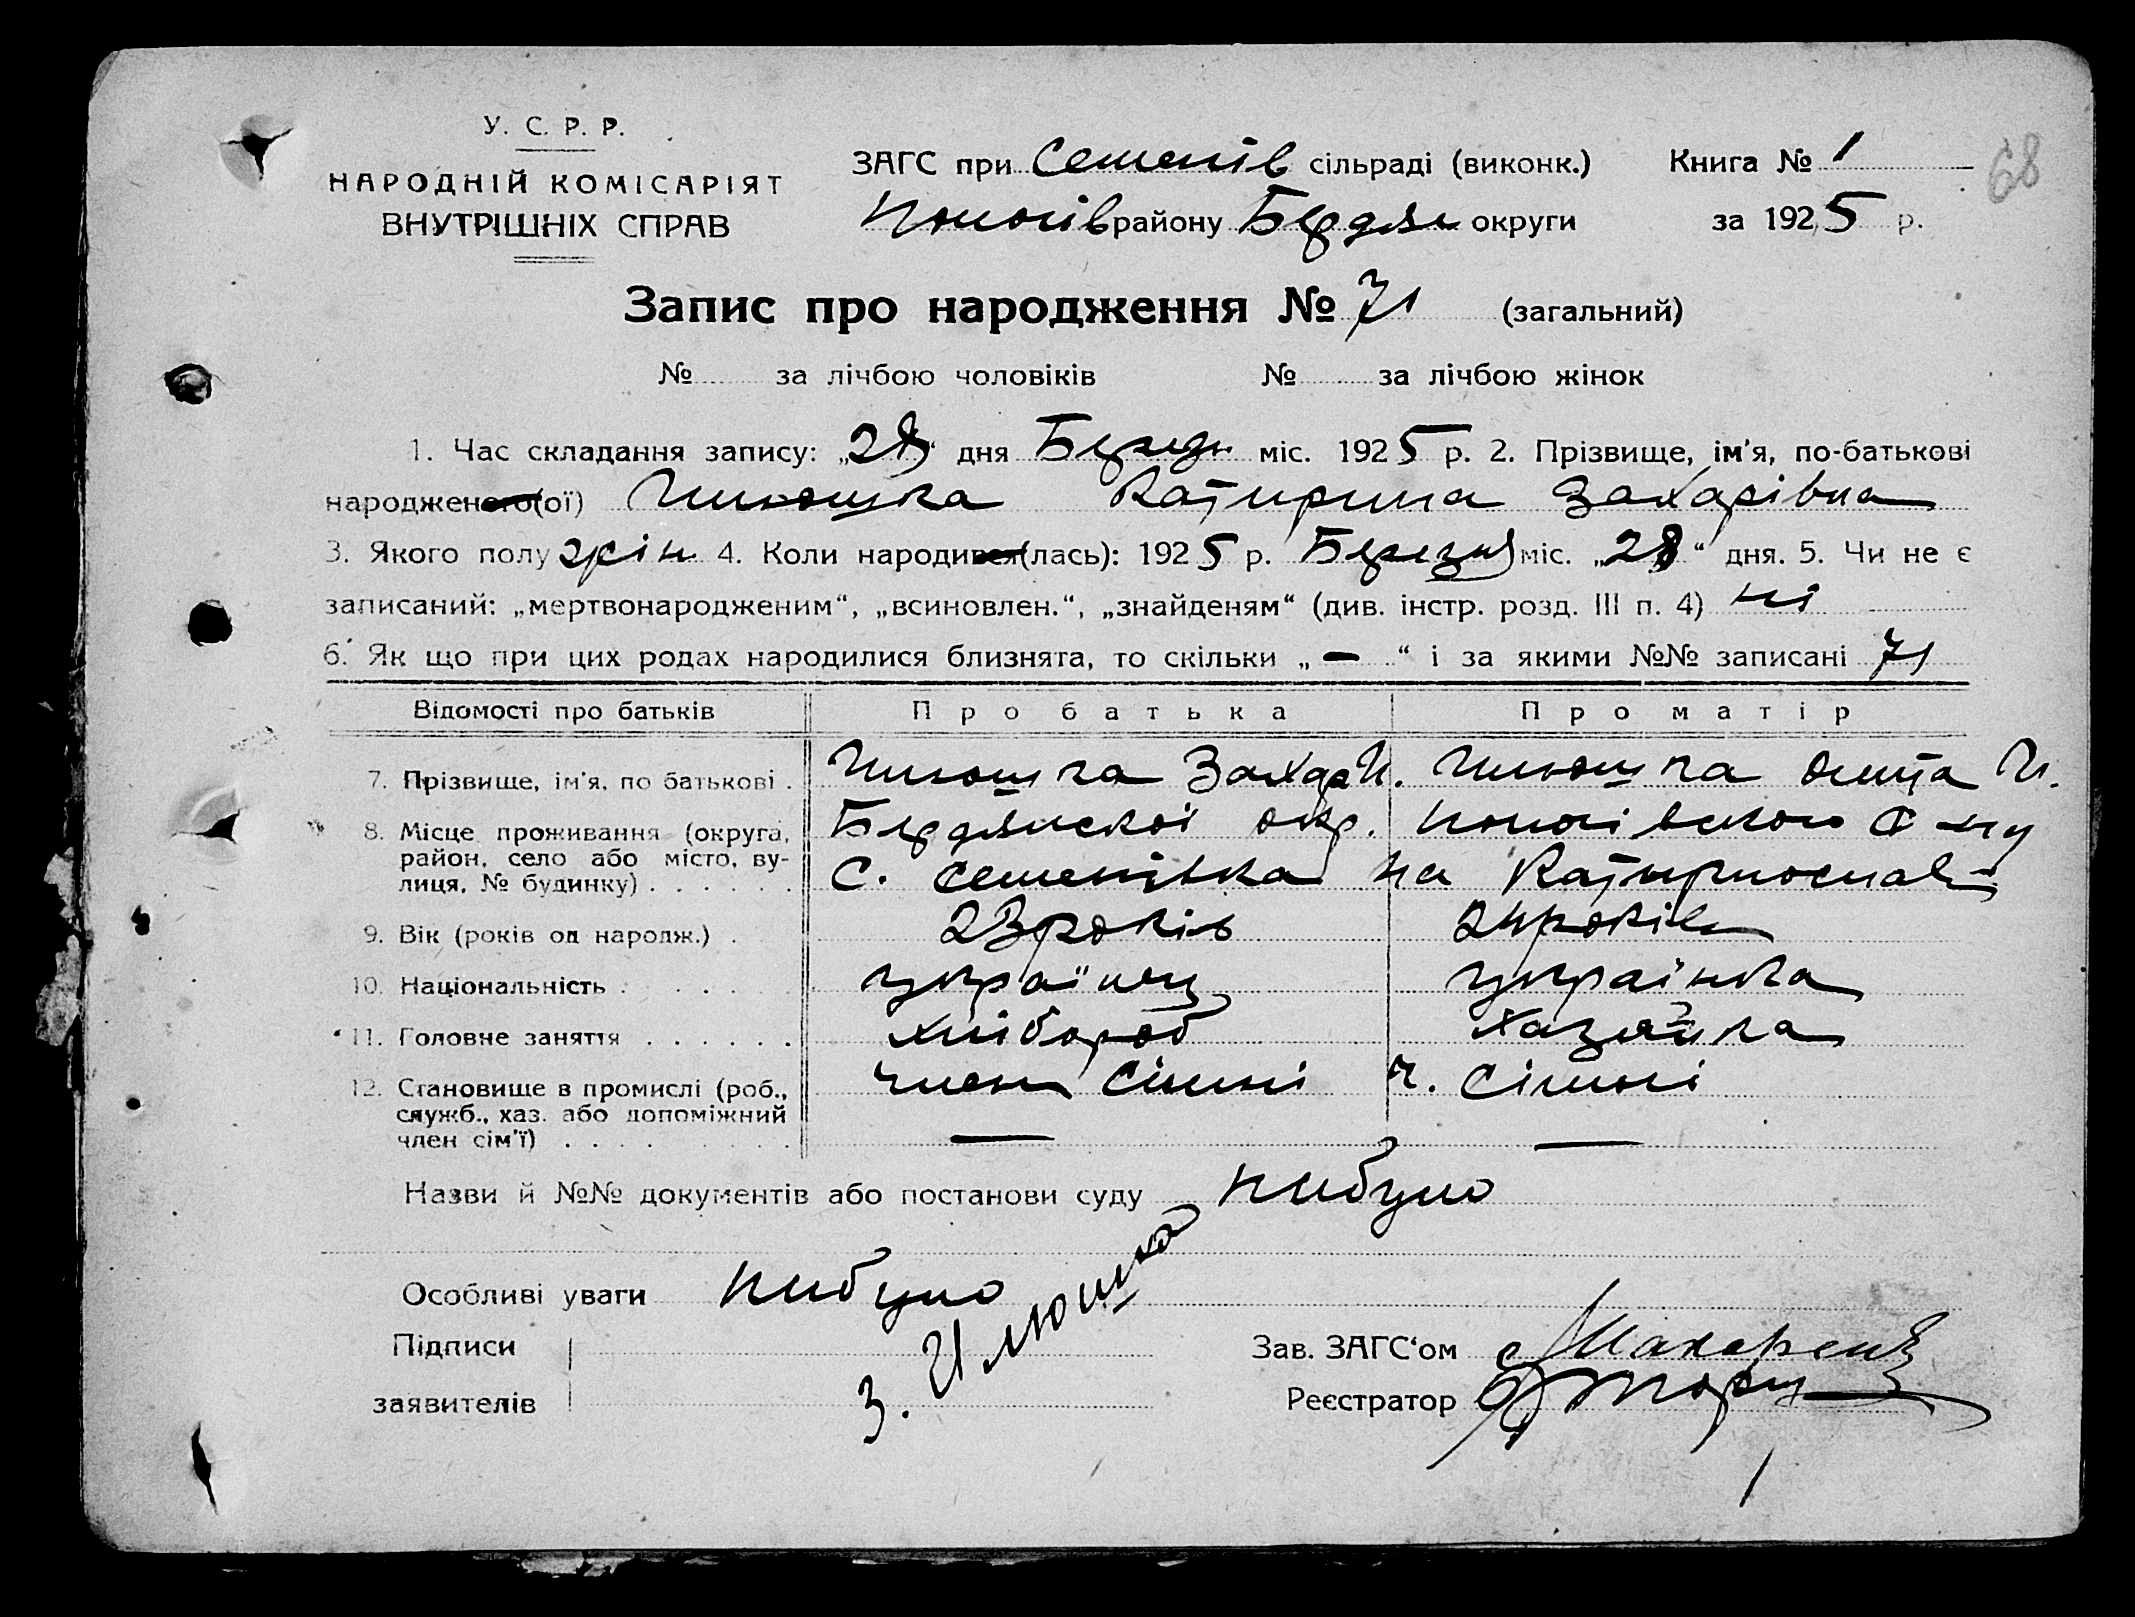 У. С. Р. Р.
НАРОДНІЙ КОМІСАРІЯТ
ВНУТРІШНІХ СПРАВ
ЗАГС при Семенів сільраді (виконк.) Книга № 1
68
Пологів району Бердян округи за 1925 р.
Запис про народження № 71 (загальний)
№ за лічбою чоловіків № за лічбою жінок
1. Час складання запису: „28“ дня міс. 1925 р. 2. Прізвище, ім'я, по-батькові
народженого(ої) Илюшка Катирина Захарівна
3. Якого полу жін 4. Коли народився(лась): 1925 р. Березня міс. „28“ дня. 5. Чи не є
записаний: „мертвонародженим“, „всиновлен.“, „знайденям“ (див. інстр. розд. III п. 4) ні
6. Як що при цих родах народилися близнята, то скільки „ — “ і за якими №№ записані 71
Відомості про батьків Про батька Про матір
7. Прізвище, ім'я, по батькові . Илюшка Захар И. Илюшка И.
8. Місце проживання (округа, район, село або місто, вулиця, № будинку) . . . . . . Бердянскоі окр. Пологівского
С. Семенівка на
9. Вік (років од народж.) . 23 років 24 років
10. Національність . українец українка
11. Головне заняття . . . . . . хлібороб хазяйка
12. Становище в промислі (роб., служб., хаз. або допоміжний член сім'ї) . . . . . . член сімні ч. сімні
— —
Назви й №№ документів або постанови суду нибуло
Особливі уваги нибуло
Підписи
заявителів
З. Илюшка
Зав. ЗАГС'ом Макаренко
Реєстратор